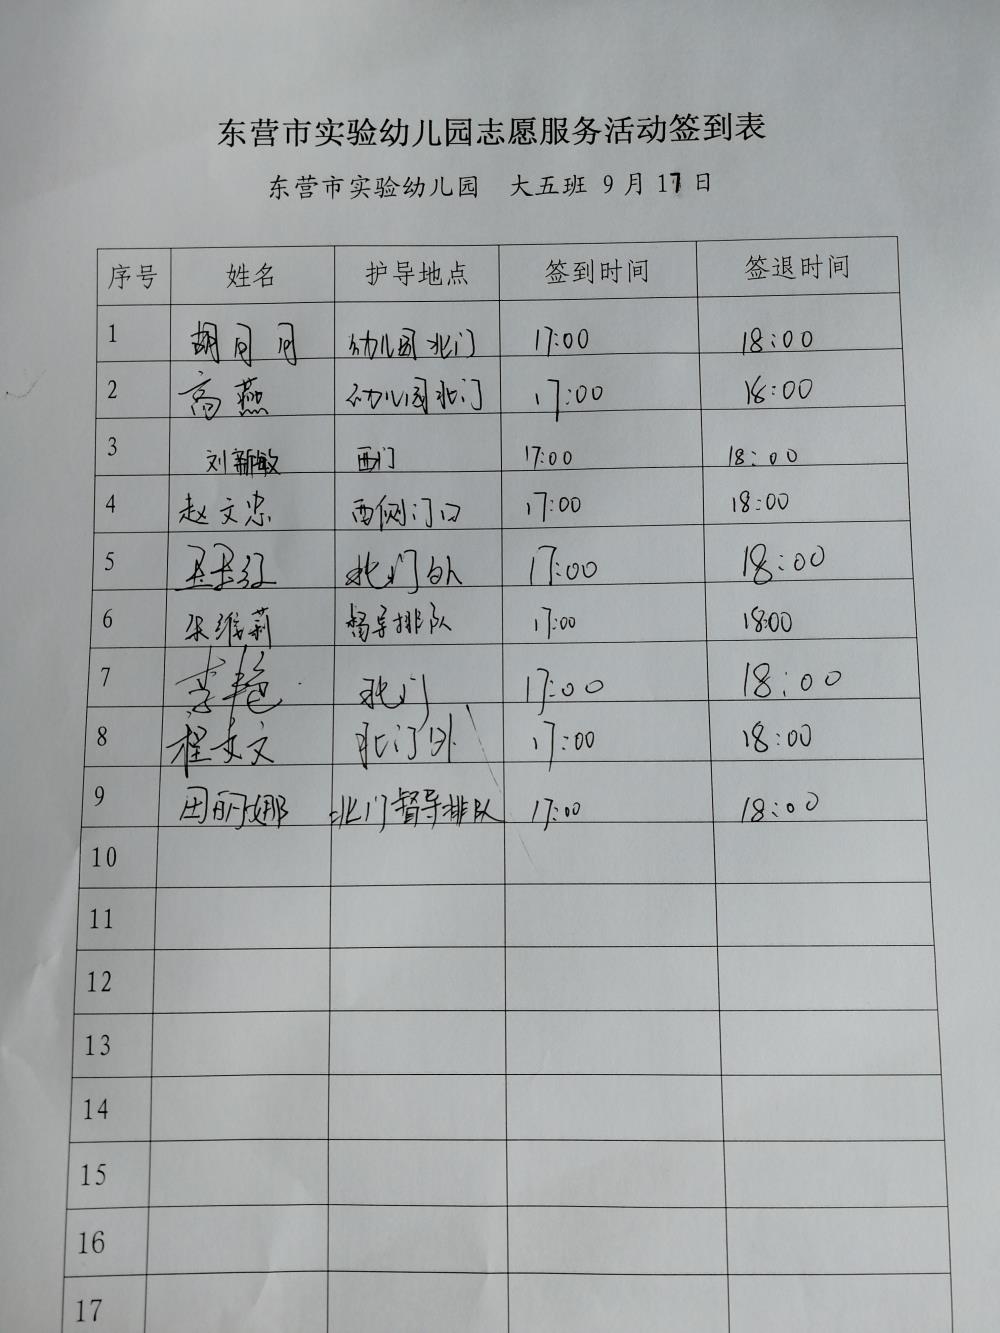 东营市实验幼儿园志愿服务活动签到表
东营市实验幼儿园 大五班 9月17日
序号 姓名 护导地点 签到时间 签退时间
1 胡月月 幼儿园北门 17:00 18:00
2 高燕 幼儿园北门 17:00 18:00
3 刘新敏 西门 17:00 18:00
4 赵文忠 西侧门口 17:00 18:00
5 北门外 17:00 18:00
6 张维莉 督导排队 17:00 18:00
7 李艳 北门 17:00 18:00
8 程文文 北门外 17:00 18:00
9 田丽娜 北门督导排队 17:00 18:00
10
11
12
13
14
15
16
17